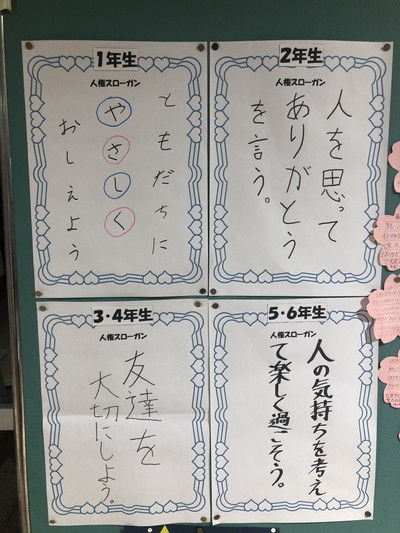 1年生
人権スローガン
ともだちに
やさしく
おしえよう
2年生
人権スローガン
人を思って
ありがとう
を言う。
3・4年生
人権スローガン
友達を
大切にしよう。
5・6年生
人権スローガン
人の気持ちを考え
て楽しく過ごそう。